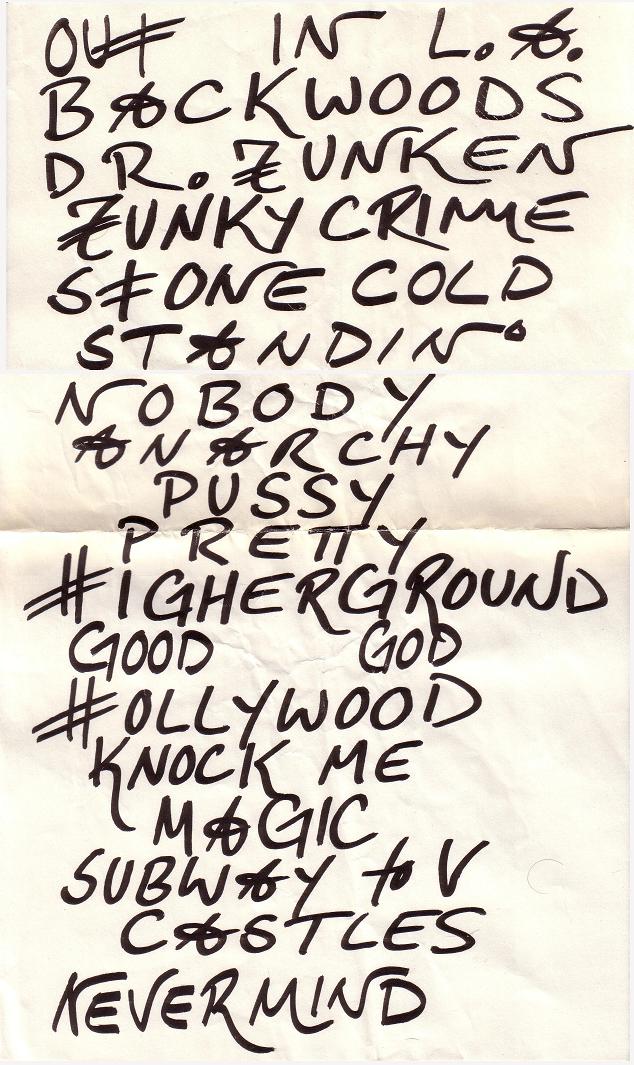 OUT IN L.A.
BACKWOODS
DR. FUNKEN
FUNKY CRIME
STONE COLD
STANDIN'
NOBODY
ANARCHY
PUSSY
PRETTY
HIGHERGROUND
GOOD GOD
HOLLYWOOD
KNOCK ME
MAGIC
SUBWAY to V
CASTLES
NEVERMIND